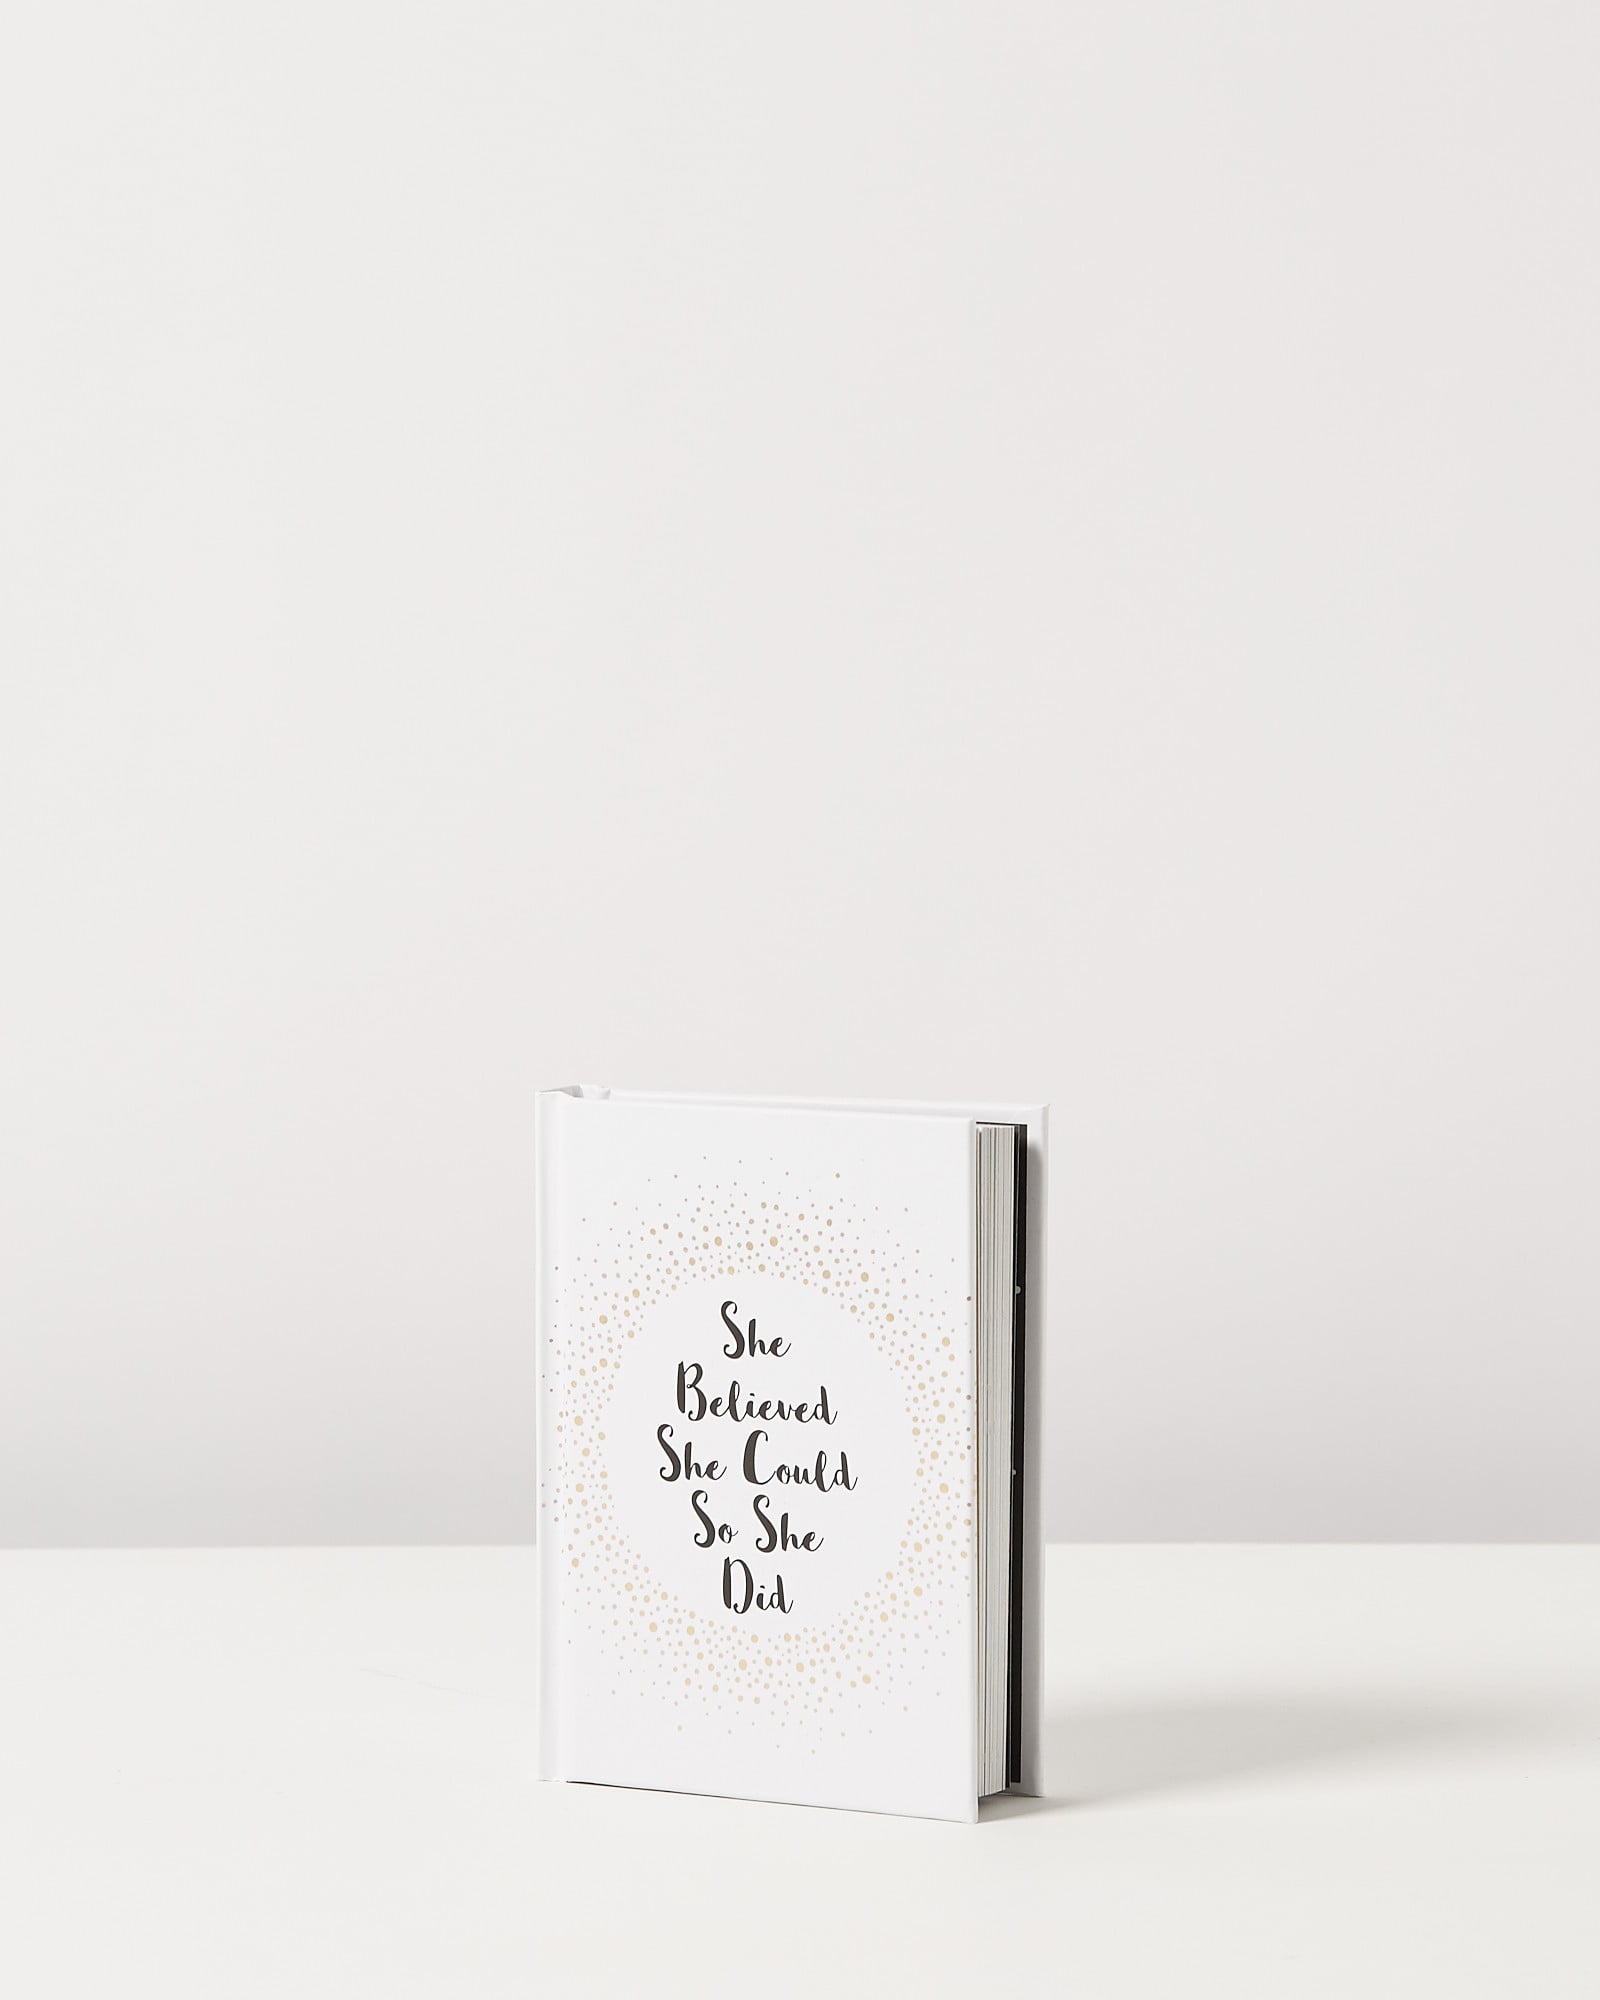 She
Believed
She Could
So She
Did